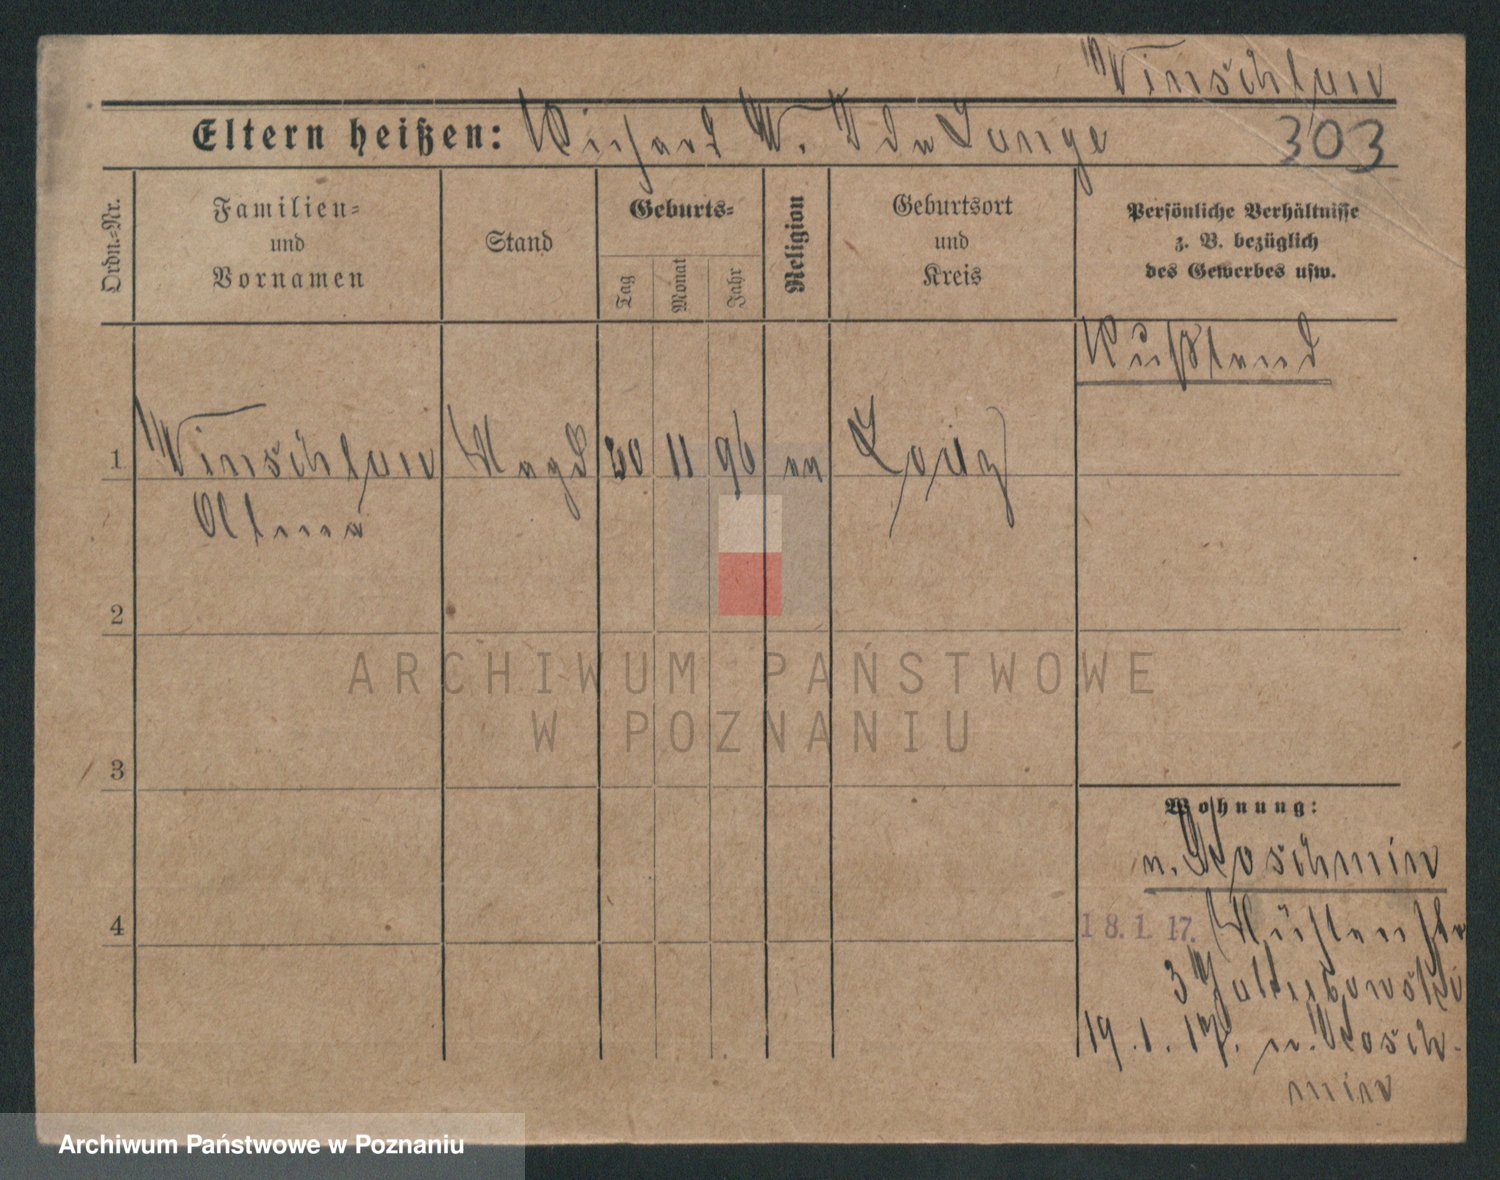 Winschlau
Eltern heißen: Richard W. Ida Lange 303
Ordn.-Nr.
Familien- und Vornamen
Stand
Geburts-
Tag
Monat
Jahr
Religion
Geburtsort und Kreis
Persönliche Verhältnisse
z. B. bezüglich
des Gewerbes usw.
Rußland
1 Winschlau Magd 20 11 96 ev
Olma
2
ARCHIWUM PAŃSTWOWE
W POZNANIU
3
Wohnung:
n. Koschmin
4
18. 1. 17.
3
19. 1. 17. n. Kosch-
min
Archiwum Państwowe w Poznaniu